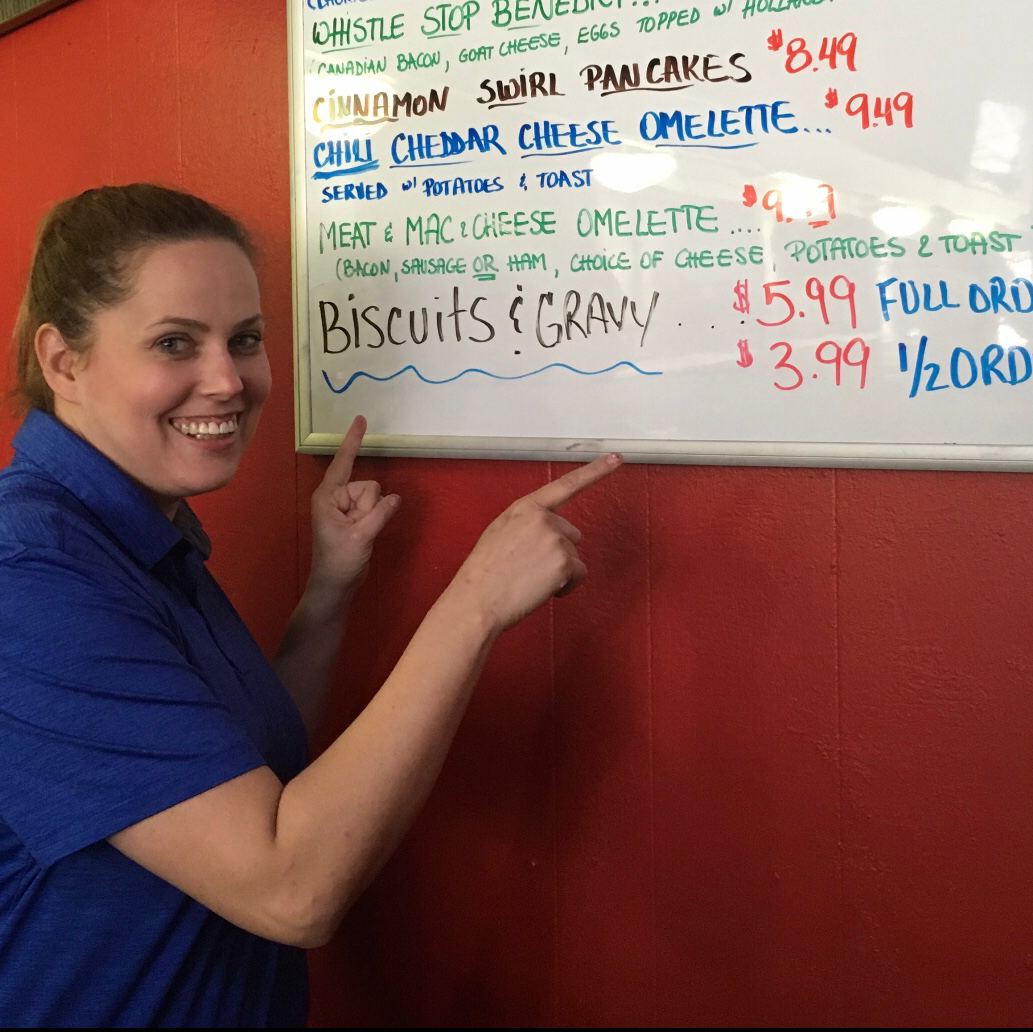 WHISTLE STOP BENEDICT...
CANADIAN BACON, GOAT CHEESE, EGGS TOPPED W/
CINNAMON SWIRL PANCAKES $8.49
CHILI CHEDDAR CHEESE OMELETTE... $9.49
SERVED W/ POTATOES & TOAST
MEAT & MAC & CHEESE OMELETTE ....
(BACON, SAUSAGE OR HAM, CHOICE OF CHEESE, POTATOES & TOAST
BISCUITS & GRAVY ... $5.99 FULL ORD
$3.99 1/2 ORD